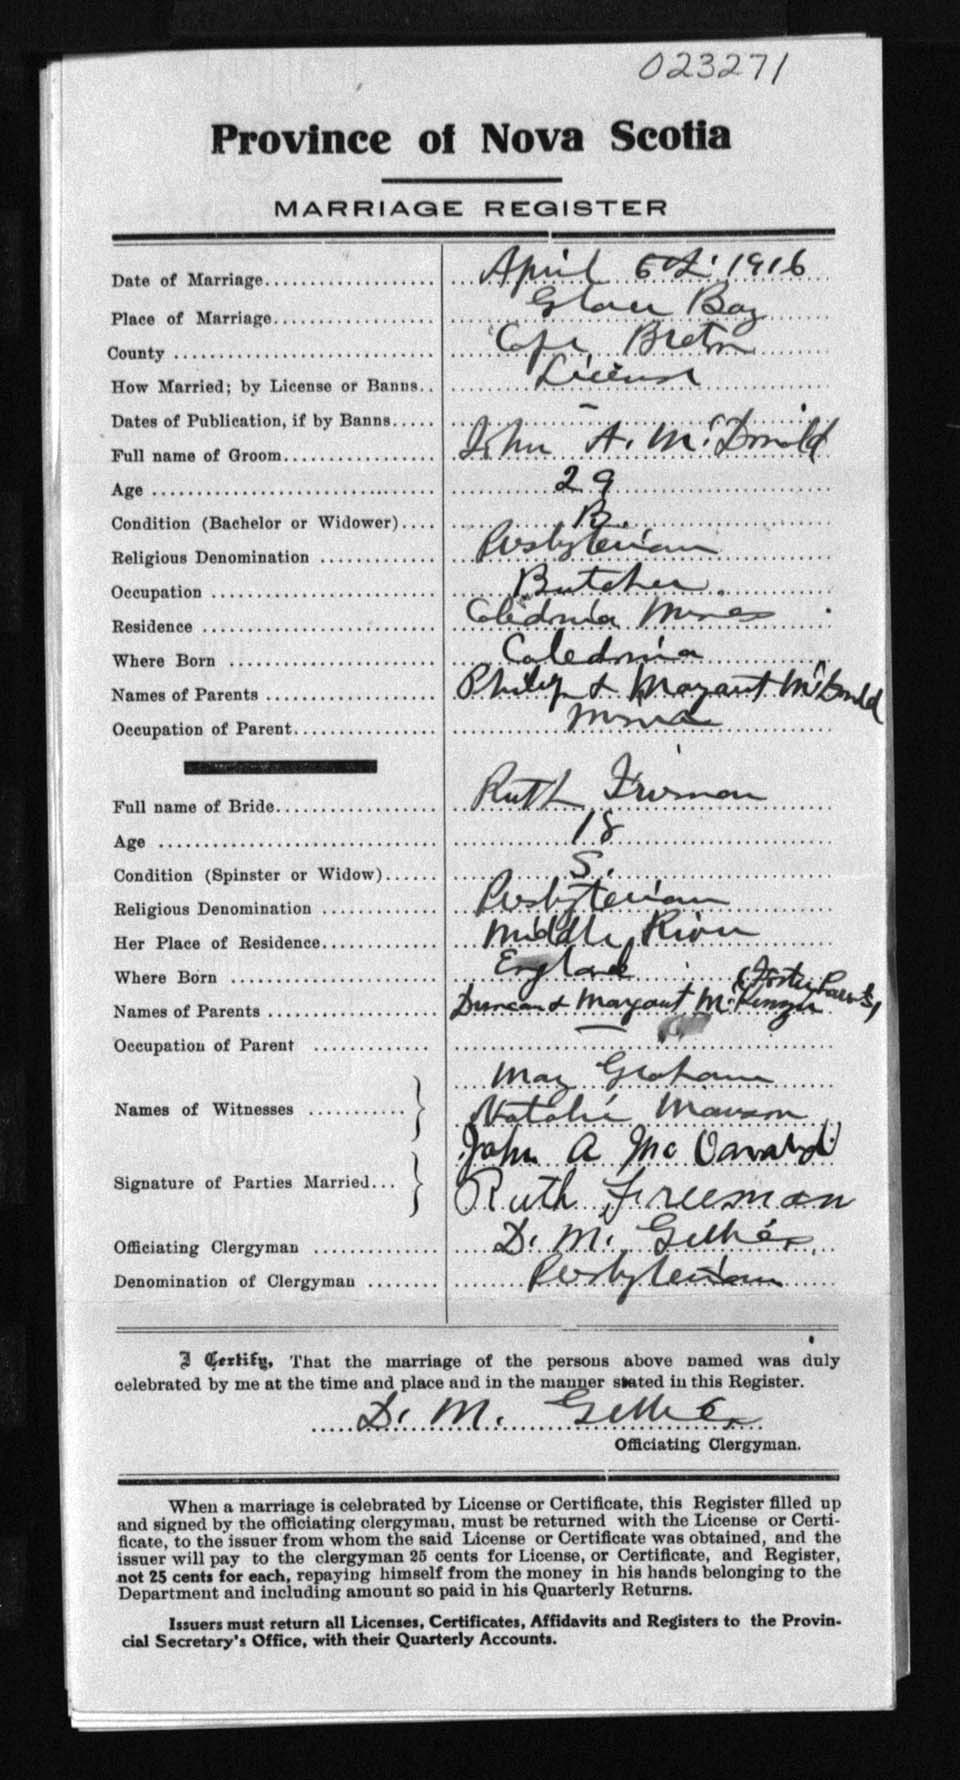 023271
Province of Nova Scotia
MARRIAGE REGISTER
Date of Marriage.................. April 6th 1916
Place of Marriage................. Glace Bay
County ........................... Cape Breton
How Married; by License or Banns.. License
Dates of Publication, if by Banns..... —
Full name of Groom................ John A. McDonald
Age .............................. 29
Condition (Bachelor or Widower).... B.
Religious Denomination ............ Presbyterian
Occupation ....................... Butcher
Residence ........................ Caledonia Mines
Where Born ....................... Caledonia
Names of Parents ................. Philip & Margaret McDonald
Occupation of Parent..............
Full name of Bride................ Ruth Freeman
Age .............................. 18
Condition (Spinster or Widow)...... S.
Religious Denomination ............ Presbyterian
Her Place of Residence............ Middle River
Where Born ....................... England
Names of Parents ................. Duncan & Margaret McKenzie (Foster Parents)
Occupation of Parent ............. —
Names of Witnesses ........... May Graham
Natalie
Signature of Parties Married... John A McDonald
Ruth Freeman
Officiating Clergyman ............. D. M. Gillies
Denomination of Clergyman ........ Presbyterian
I Certify, That the marriage of the persons above named was duly
celebrated by me at the time and place and in the manner stated in this Register.
D. M. Gillies
Officiating Clergyman.
When a marriage is celebrated by License or Certificate, this Register filled up
and signed by the officiating clergyman, must be returned with the License or Certi-
ficate, to the issuer from whom the said License or Certificate was obtained, and the
issuer will pay to the clergyman 25 cents for License, or Certificate, and Register,
not 25 cents for each, repaying himself from the money in his hands belonging to the
Department and including amount so paid in his Quarterly Returns.
Issuers must return all Licenses, Certificates, Affidavits and Registers to the Provin-
cial Secretary's Office, with their Quarterly Accounts.